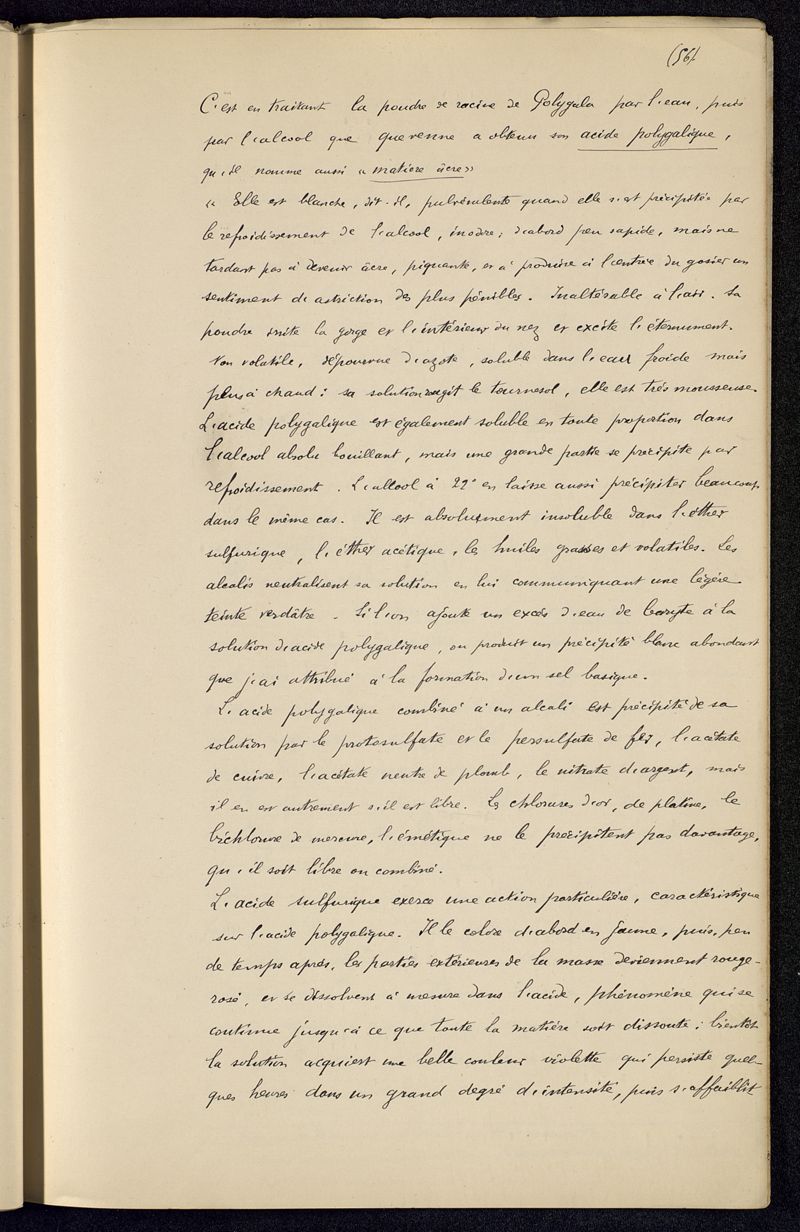 (56)
C'est en traitant la poudre de racine de Polygala par l'eau, puis
par l'alcool que Quevenne a obtenu son acide polygalique,
qu'il nomme aussi « matière âcre »
« Elle est blanche, dit-il, pulvérulente quand elle s'est précipitée par
le refroidissement de l'alcool, inodore; d'abord peu sapide, mais ne
tardant pas à devenir âcre, piquante, et à produire à l'entrée du gosier un
sentiment de astriction des plus pénibles. Inaltérable à l'air. Sa
poudre irrite la gorge et l'intérieur du nez et excite l'éternument.
Non volatile, dépourvue d'azote, soluble dans l'eau froide mais
plus à chaud: sa solution rougit le tournesol, elle est très mousseuse.
L'acide polygalique est également soluble en toute proportion dans
l'alcool absolu bouillant, mais une grande partie se précipite par
refroidissement. L'alcool à 22° en laisse aussi précipiter beaucoup
dans le même cas. Il est absolument insoluble dans l'éther
sulfurique, l'éther acétique, les huiles grasses et volatiles. Les
alcalis neutralisent sa solution en lui communiquant une légère
teinte verdâtre. Si l'on ajoute un excès d'eau de baryte à la
solution d'acide polygalique, on produit un précipité blanc abondant
que j'ai attribué à la formation d'un sel basique.
L'acide polygalique combiné à un alcali est précipité de sa
solution par le protosulfate et le persulfate de fer, l'acétate
de cuivre, l'acétate neutre de plomb, le nitrate d'argent, mais
il en est autrement s'il est libre. Les chlorures d'or, de platine, le
bichlorure de mercure, l'émétique ne le précipitent pas davantage,
qu'il soit libre ou combiné.
L'acide sulfurique exerce une action particulière, caractéristique
sur l'acide polygalique. Il le colore d'abord en jaune, puis, peu
de temps après, les parties extérieures de la masse deviennent rouge-
rosé, et se dissolvent à mesure dans l'acide, phénomène qui se
continue jusqu'à ce que toute la matière soit dissoute; bientôt
la solution acquiert une belle couleur violette qui persiste quel-
ques heures dans un grand degré d'intensité, puis s'affaiblit